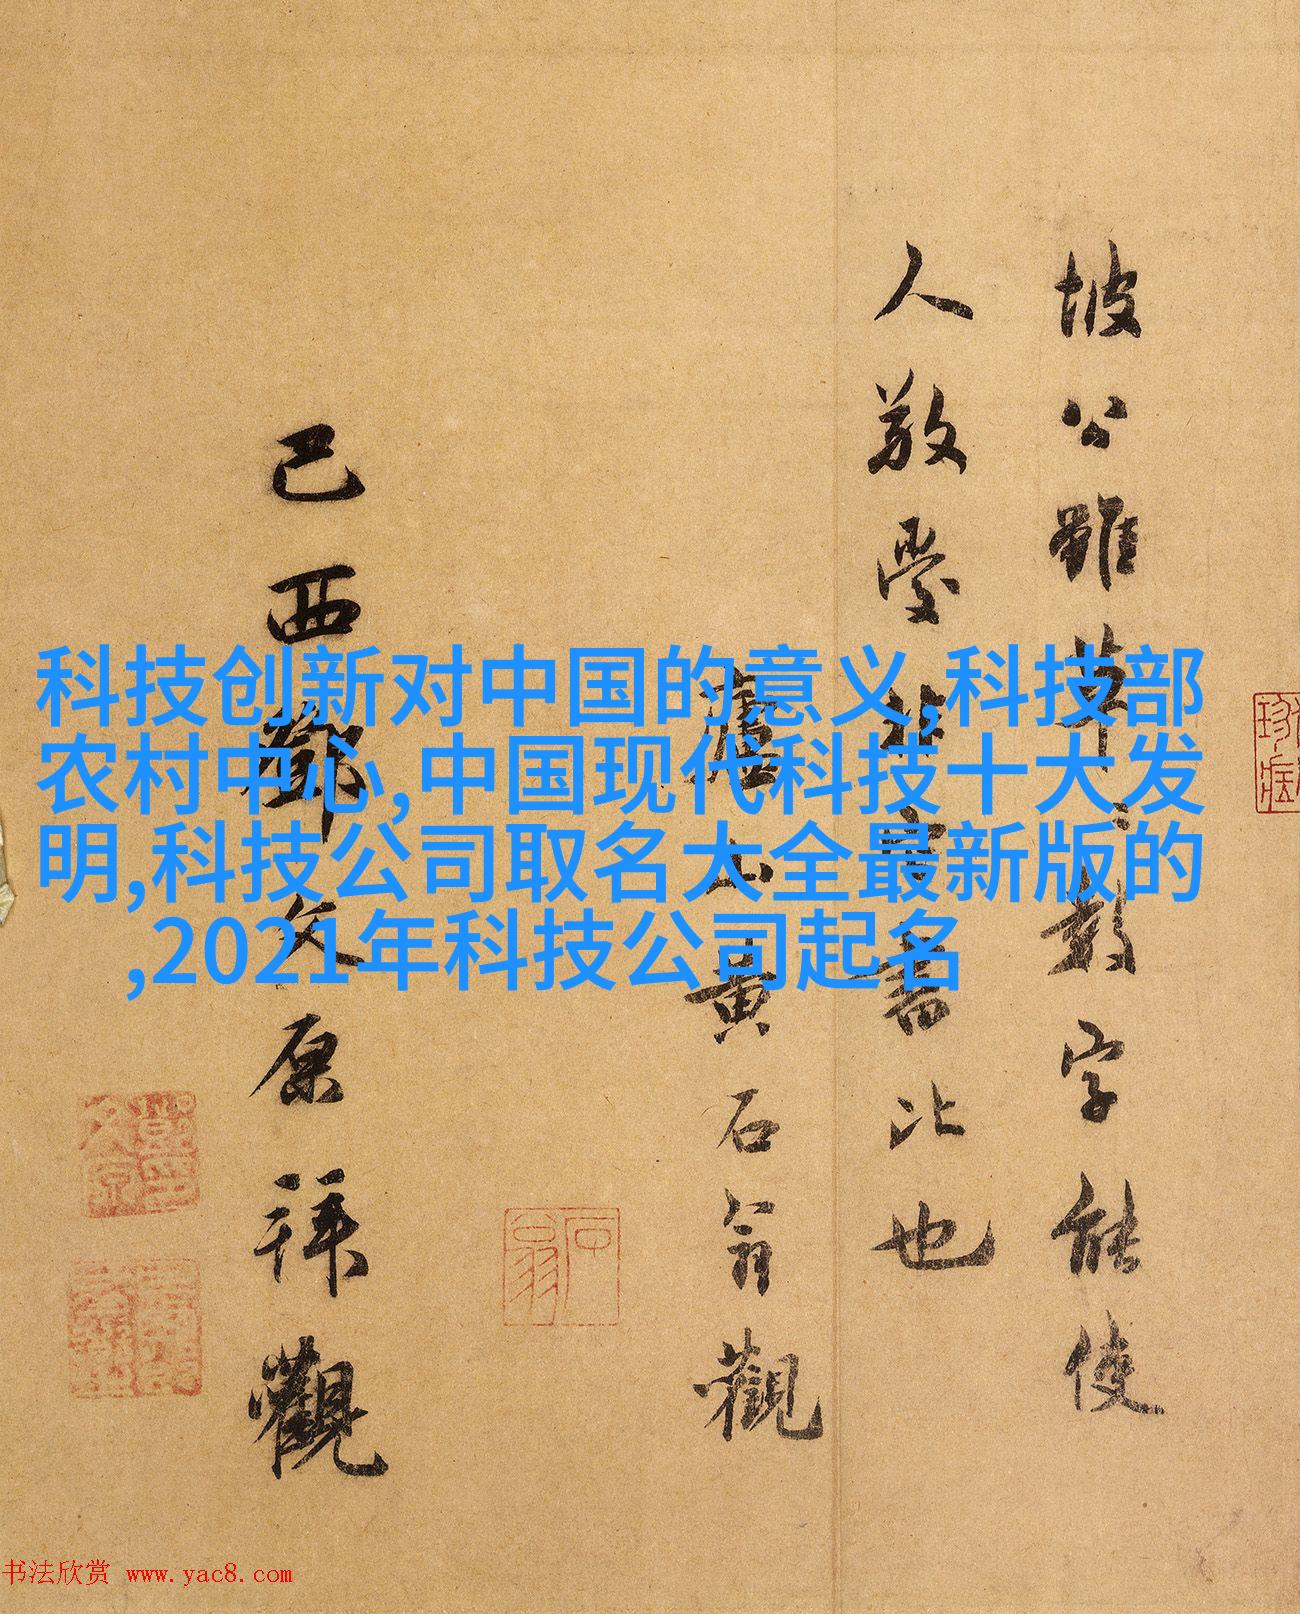 坡公雖草草數字能使
人敬愛非字書比也
廬山黃石翁觀
己酉鄧文原拜觀
石翁
科技创新对中国的意义,科技部
农村中心,中国现代科技十大发
明,科技公司取名大全最新版的
,2021年科技公司起名
书法欣赏 www.yac8.com